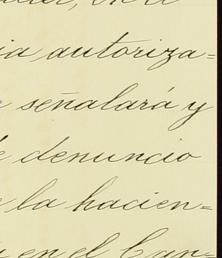 autoriza=
señalará y
denuncio
la hacien=
en el Can=